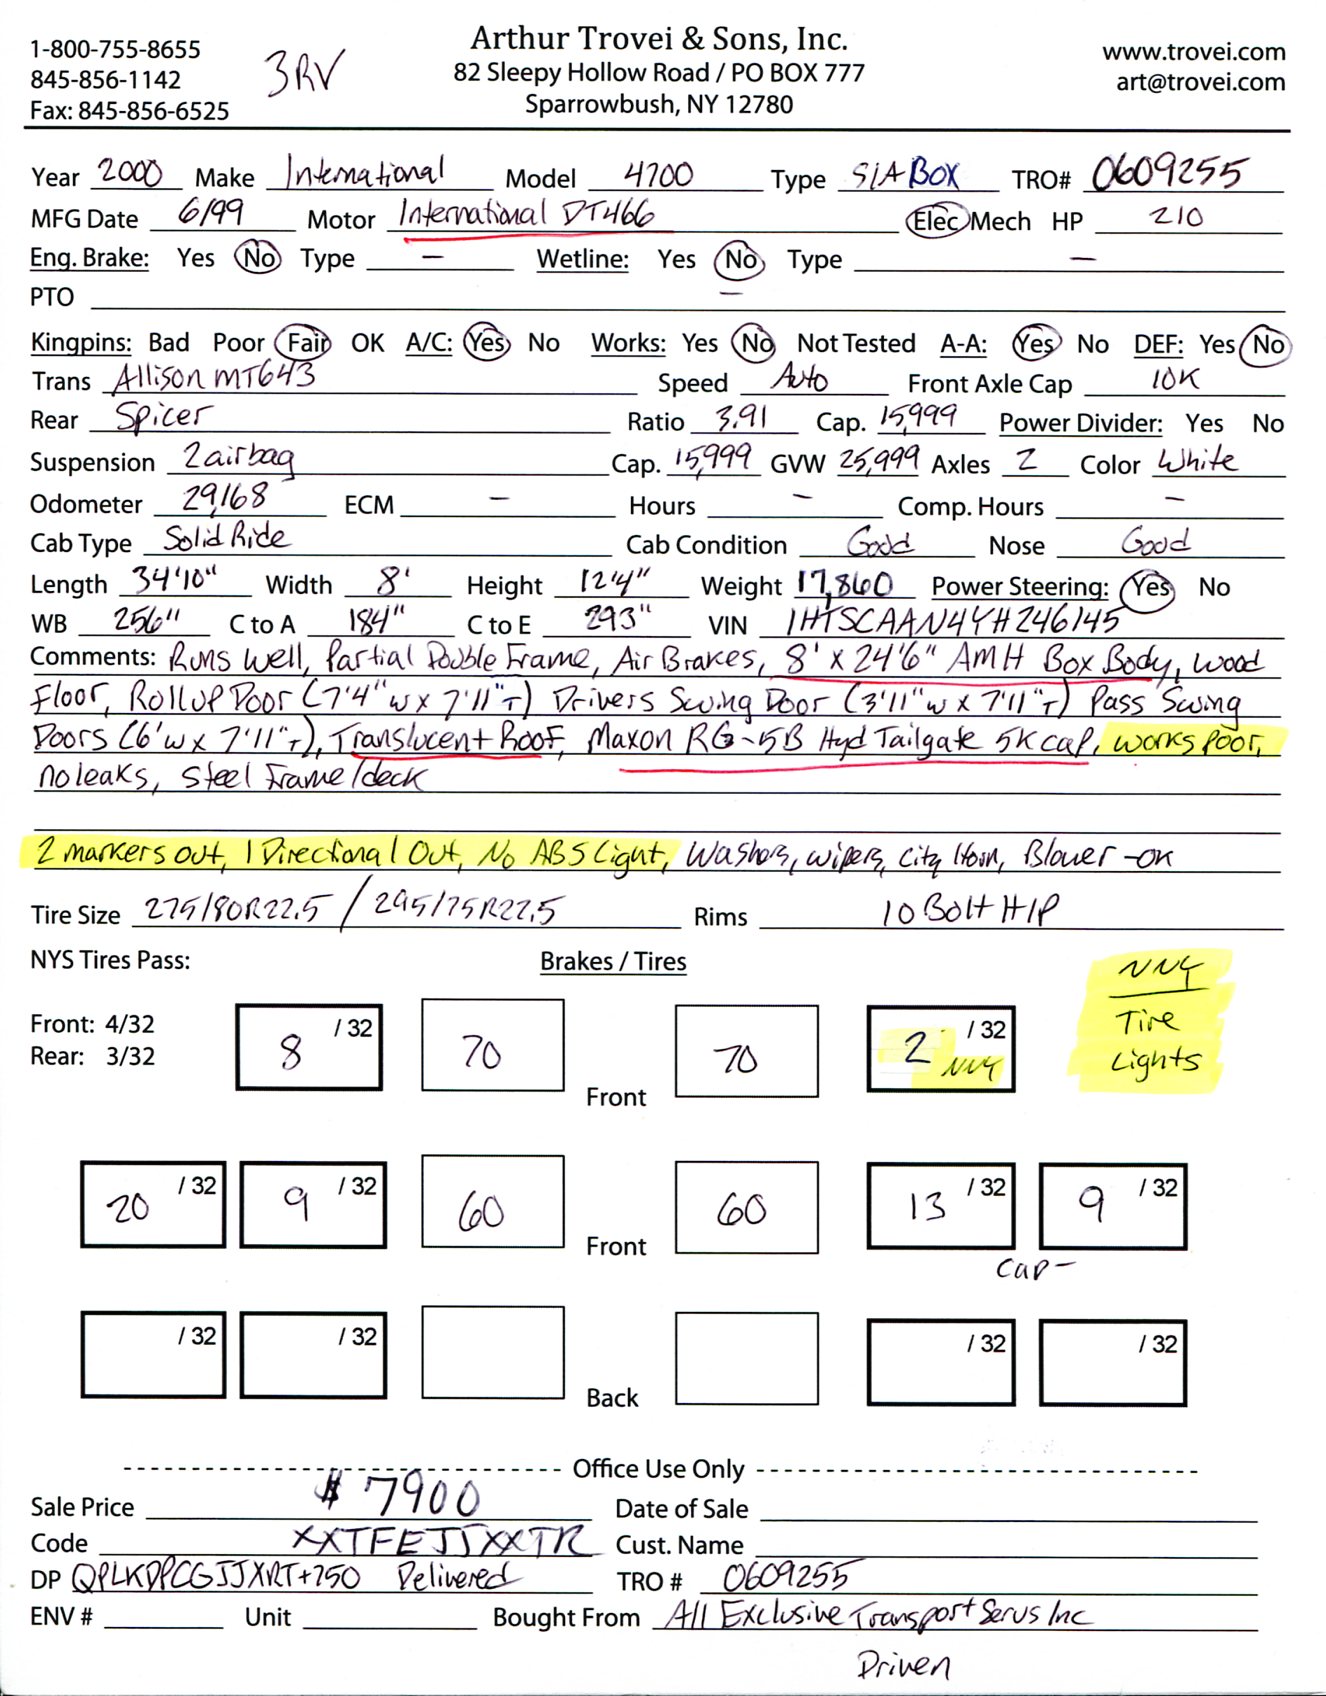 Arthur Trovei & Sons, Inc.
1-800-755-8655 3RV 82 Sleepy Hollow Road / PO BOX 777 www.trovei.com
845-856-1142 Sparrowbush, NY 12780 art@trovei.com
Fax: 845-856-6525
Year 2000 Make International Model 4700 Type S/A BOX TRO# 0609255
MFG Date 6/99 Motor International DT466 Elec Mech HP 210
Eng. Brake: Yes No Type — Wetline: Yes No Type —
PTO —
Kingpins: Bad Poor Fair OK A/C: Yes No Works: Yes No Not Tested A-A: Yes No DEF: Yes No
Trans Allison MT643 Speed Auto Front Axle Cap 10K
Rear Spicer Ratio 3.91 Cap. 15,999 Power Divider: Yes No
Suspension 2 airbag Cap. 15,999 GVW 25,999 Axles 2 Color White
Odometer 29,168 ECM — Hours — Comp. Hours —
Cab Type Solid Ride Cab Condition Good Nose Good
Length 34'10" Width 8' Height 12'4" Weight 17,860 Power Steering: Yes No
WB 256" C to A 184" C to E 293" VIN 1HTSCAAN4YH246145
Comments: Runs Well, Partial Double Frame, Air Brakes, 8' x 24'6" AMH Box Body, Wood
Floor, Rollup Door (7'4"w x 7'11"T) Drivers Swing Door (3'11"w x 7'11"T) Pass Swing
Doors (6'w x 7'11"T), Translucent Roof, Maxon RG-5B Hyd Tailgate 5K cap, works poor,
no leaks, Steel Frame/deck
2 markers out, 1 Directional Out, No ABS Light, Washers, wipers, City Horn, Blower -OK
Tire Size 275/80R22.5 / 295/75R22.5 Rims 10 Bolt H/P
NYS Tires Pass: Brakes / Tires NNY
Front: 4/32 8 /32 70 Front 70 2 /32 NNY Tire
Rear: 3/32 Lights
20 /32 9 /32 60 Front 60 13 /32 9 /32
Cap-
/32 /32 Back /32 /32
Office Use Only
Sale Price $ 7900 Date of Sale
Code XXTFEJJXXTR Cust. Name
DP QPLKDPCGJJXRT+250 Delivered TRO # 0609255
ENV # Unit Bought From All Exclusive Transport Servs Inc
Driven